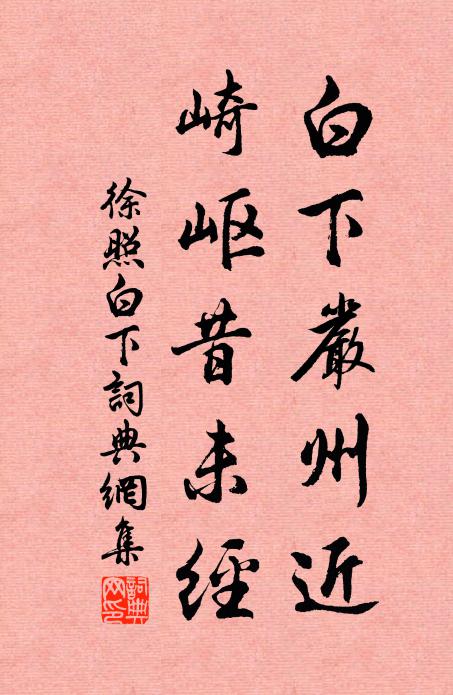 白下嚴州近
崎岖昔未經
徐照白下詞典網集
詞典
网印